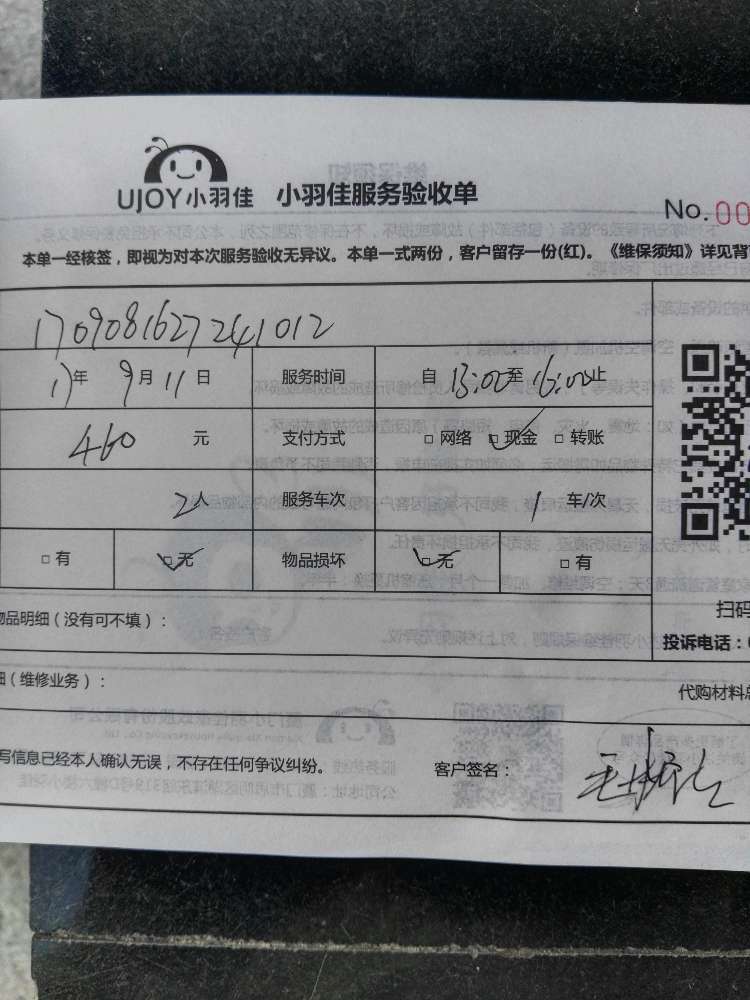 UJOY小羽佳 小羽佳服务验收单
No. 00
本单一经核签，即视为对本次服务验收无异议。本单一式两份，客户留存一份(红)。《维保须知》详见背
1709081627241012
17年9月11日 服务时间 自13:00至16:00止
460元 支付方式 □网络 □现金 □转账
2人 服务车次 1车/次
□有 □无 物品损坏 □无 □有
物品明细（没有可不填）：
扫码
投诉电话：
（维修业务）：
代购材料总
写信息已经本人确认无误，不存在任何争议纠纷。 客户签名：